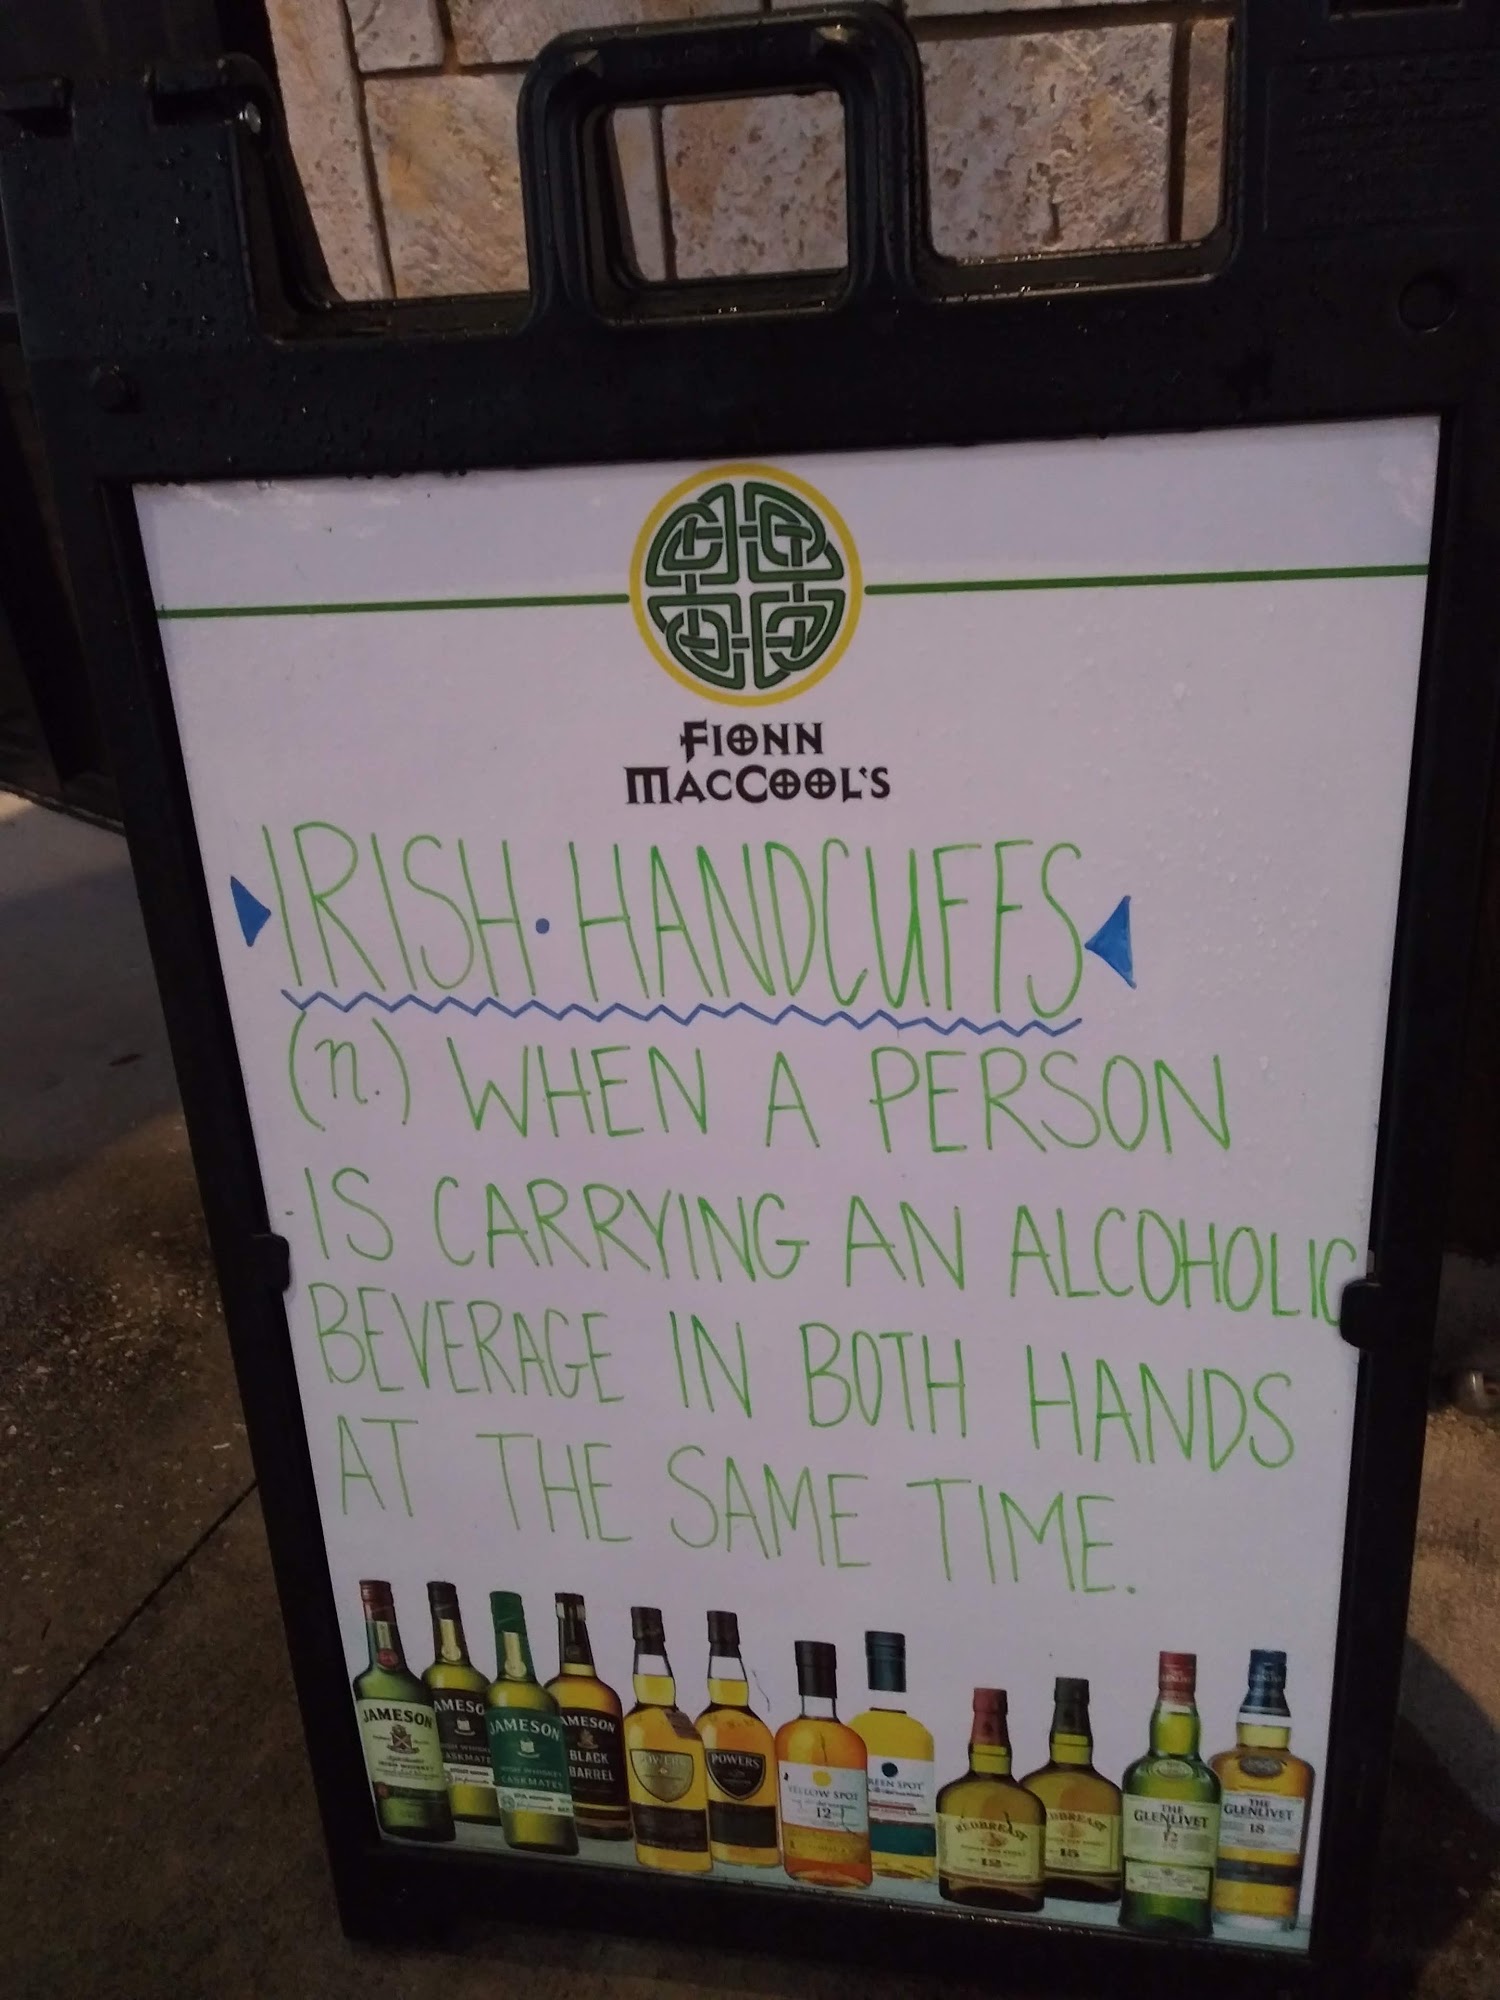 FIONN
MACCOOL'S
IRISH·HANDCUFFS
(n.) WHEN A PERSON
IS CARRYING AN ALCOHOLIC
BEVERAGE IN BOTH HANDS
AT THE SAME TIME.
JAMESON
JAMESON
CASKMATES
JAMESON
IRISH WHISKEY
CASKMATES
JAMESON
BLACK
BARREL
POWERS
POWERS
YELLOW SPOT
12
GREEN SPOT
REDBREAST
12
REDBREAST
15
THE
GLENLIVET
12
THE
GLENLIVET
18